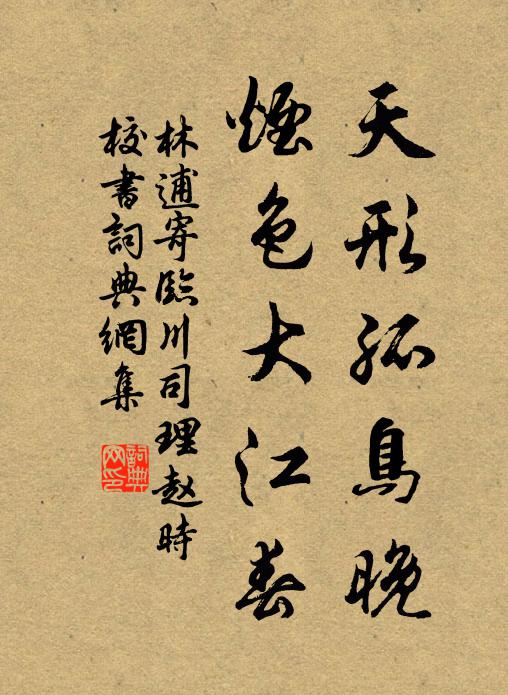 天形孤鳥晚
煙色大江春
林逋寄臨川司理赵時
校書詞典網集
詞典网印